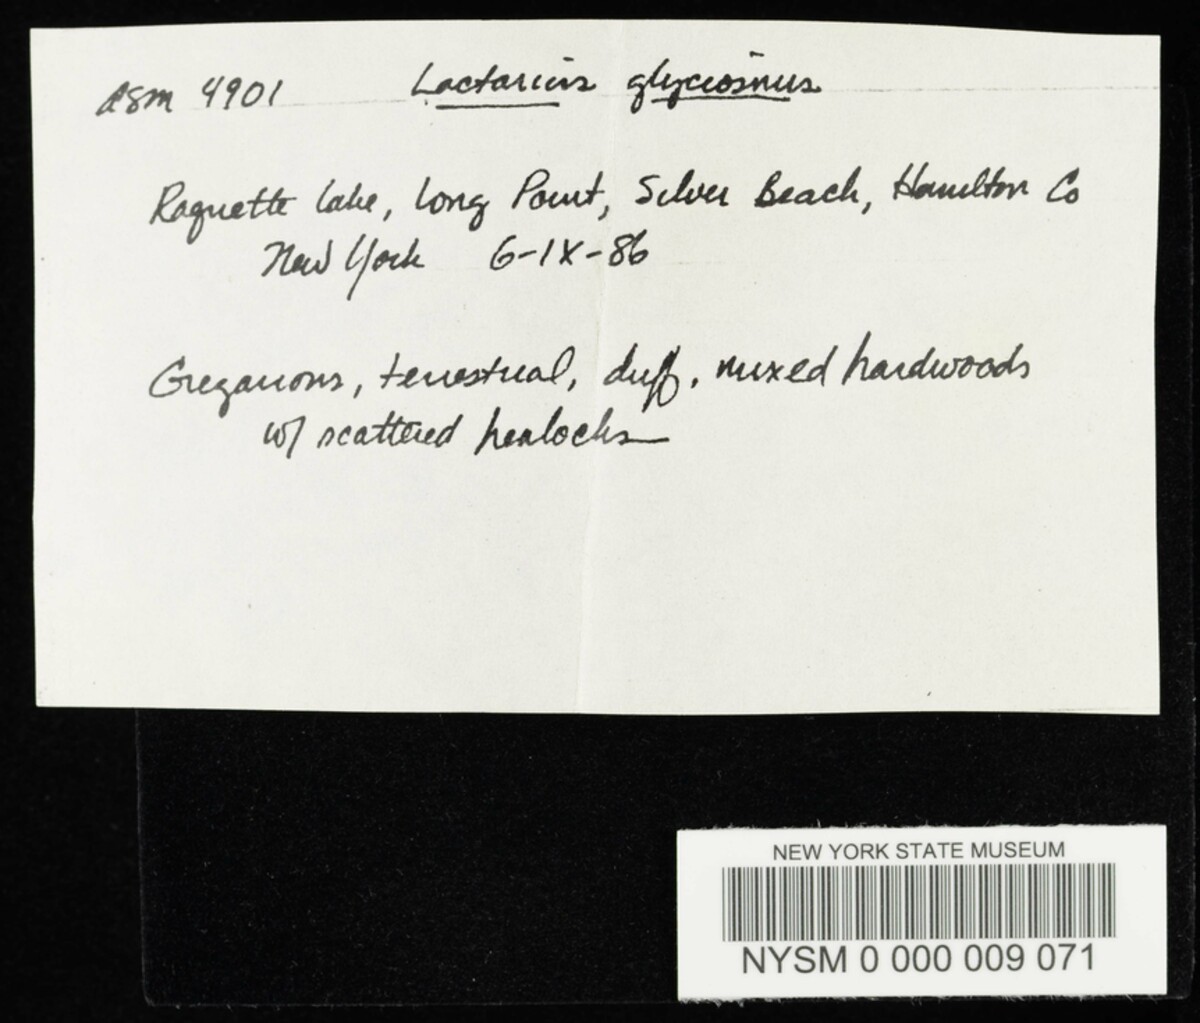 ASM 4901 Lactarius glyciosmus
Raquette Lake, Long Point, Silver Beach, Hamilton Co
New York 6-IX-86
Gregarious, terrestrial, duff, mixed hardwoods
w/ scattered hemlocks
NEW YORK STATE MUSEUM
NYSM 0 000 009 071